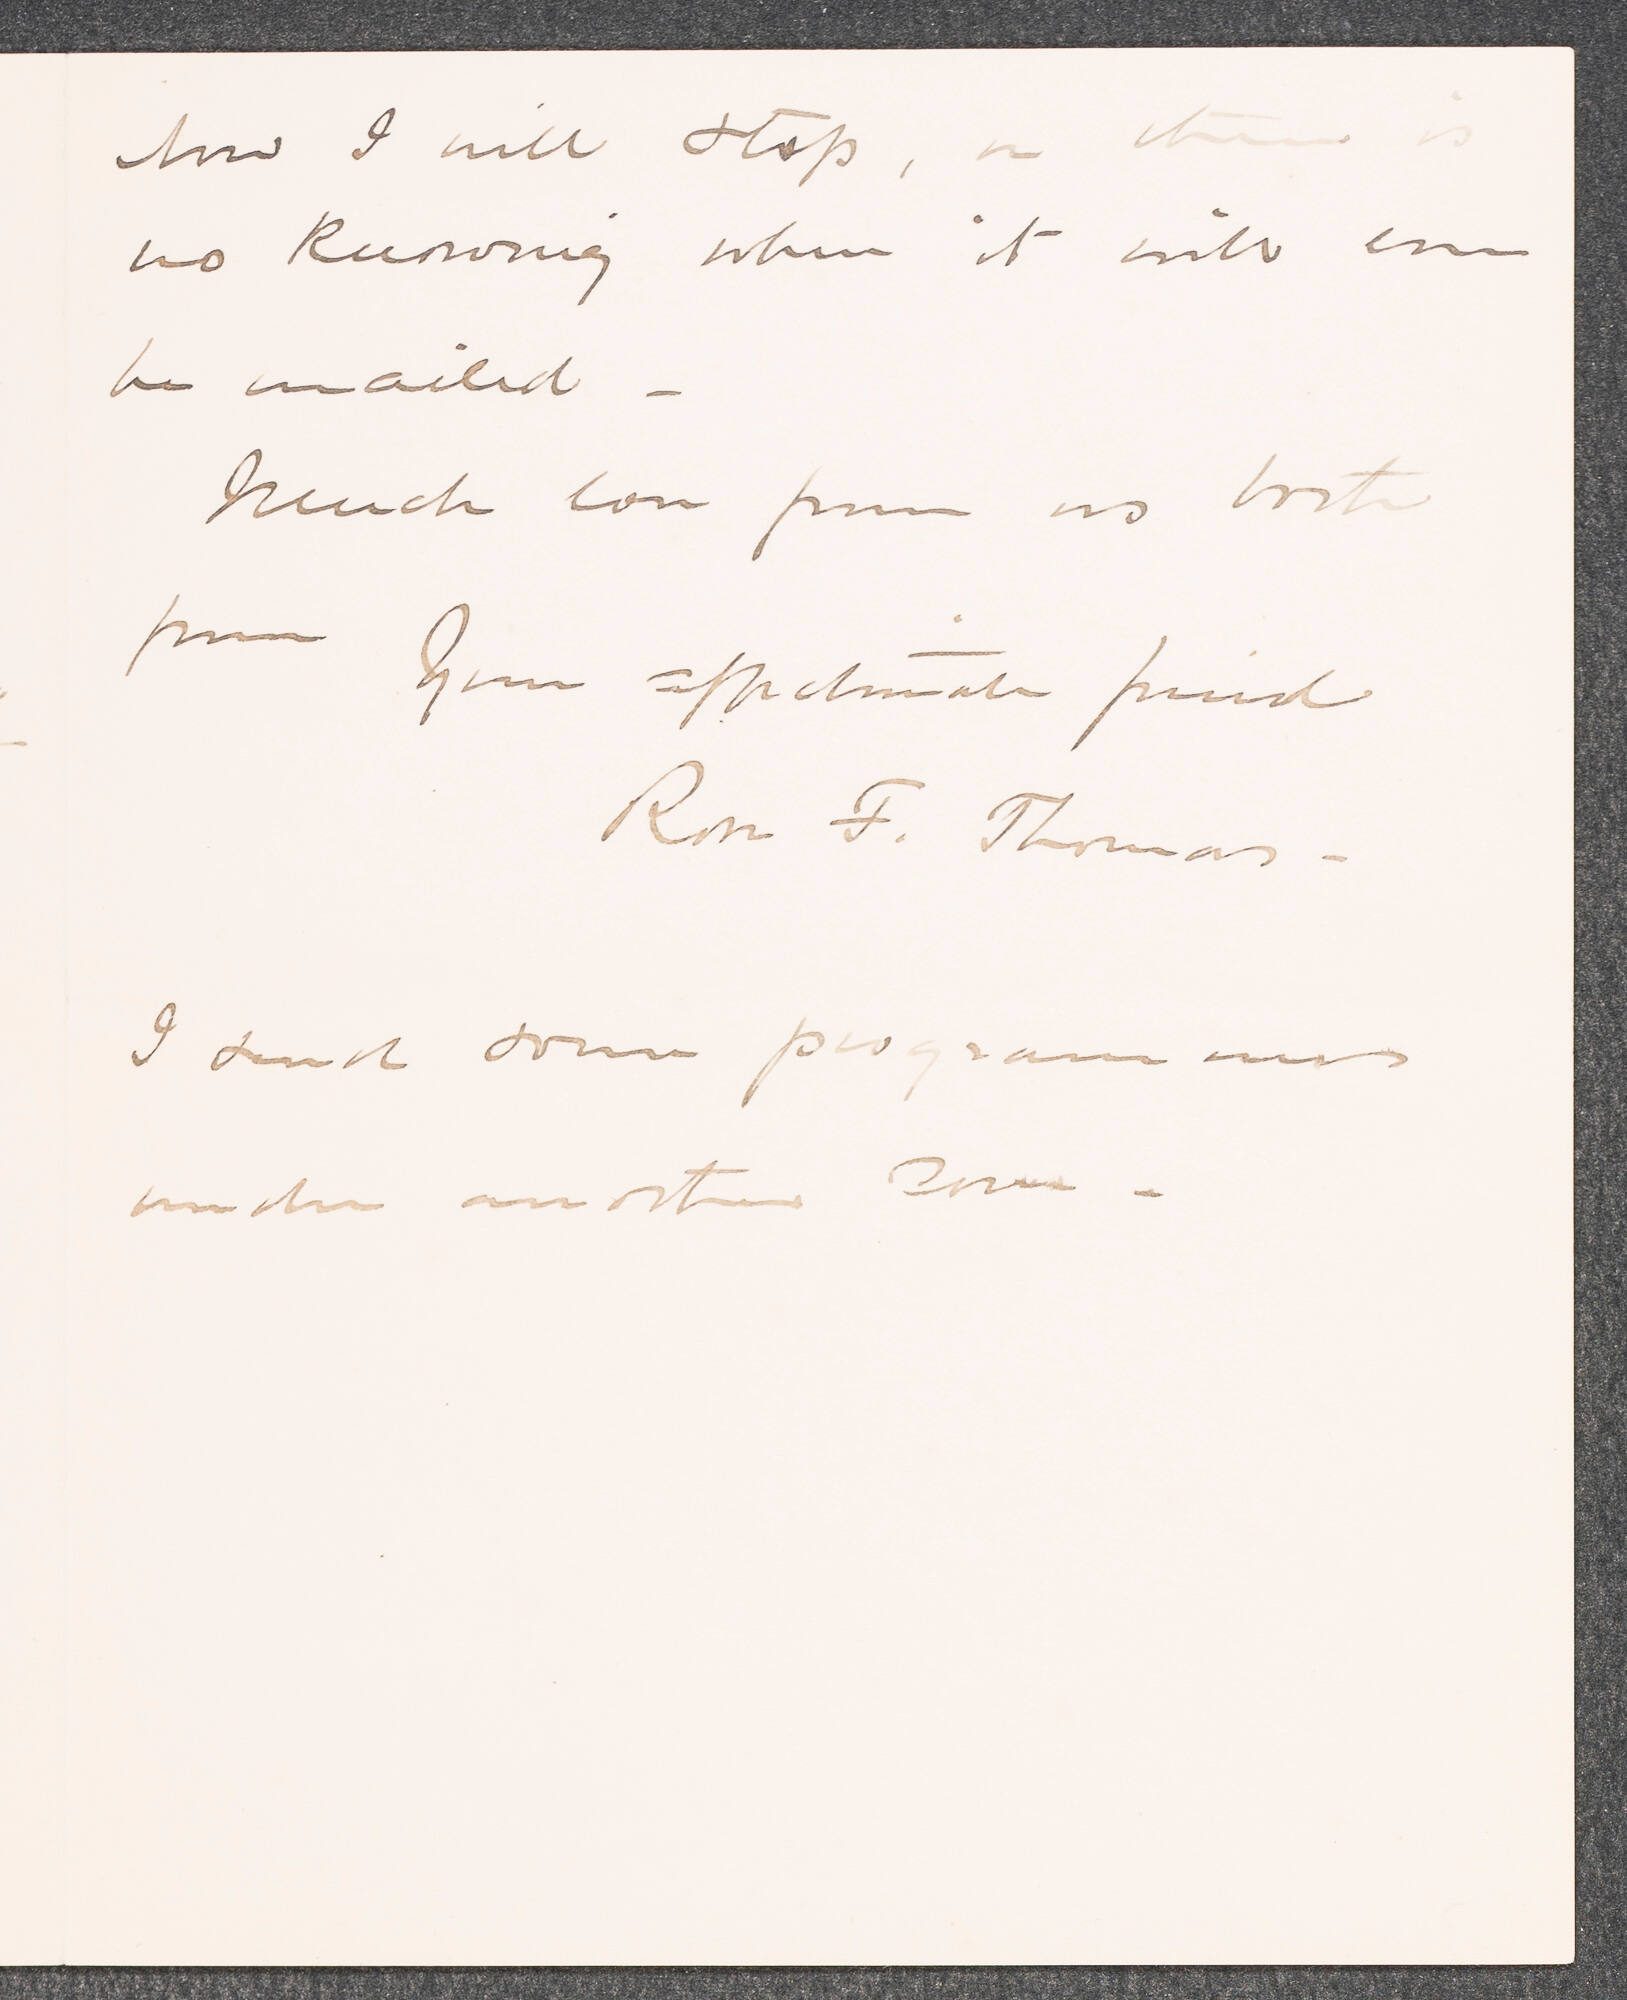 Now I will stop, or there is
no knowing when it will ever
be mailed -
Much love from us both
from Your affectionate friend
Rose F. Thomas -
I send some programmes
under another cover -